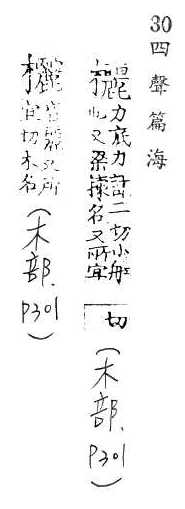 30 四聲篇海
欐 力底力計二切小船
也又梁棟名又所宜
切 (木部. P301)
音 又所
宜切木名 (木部. P301)